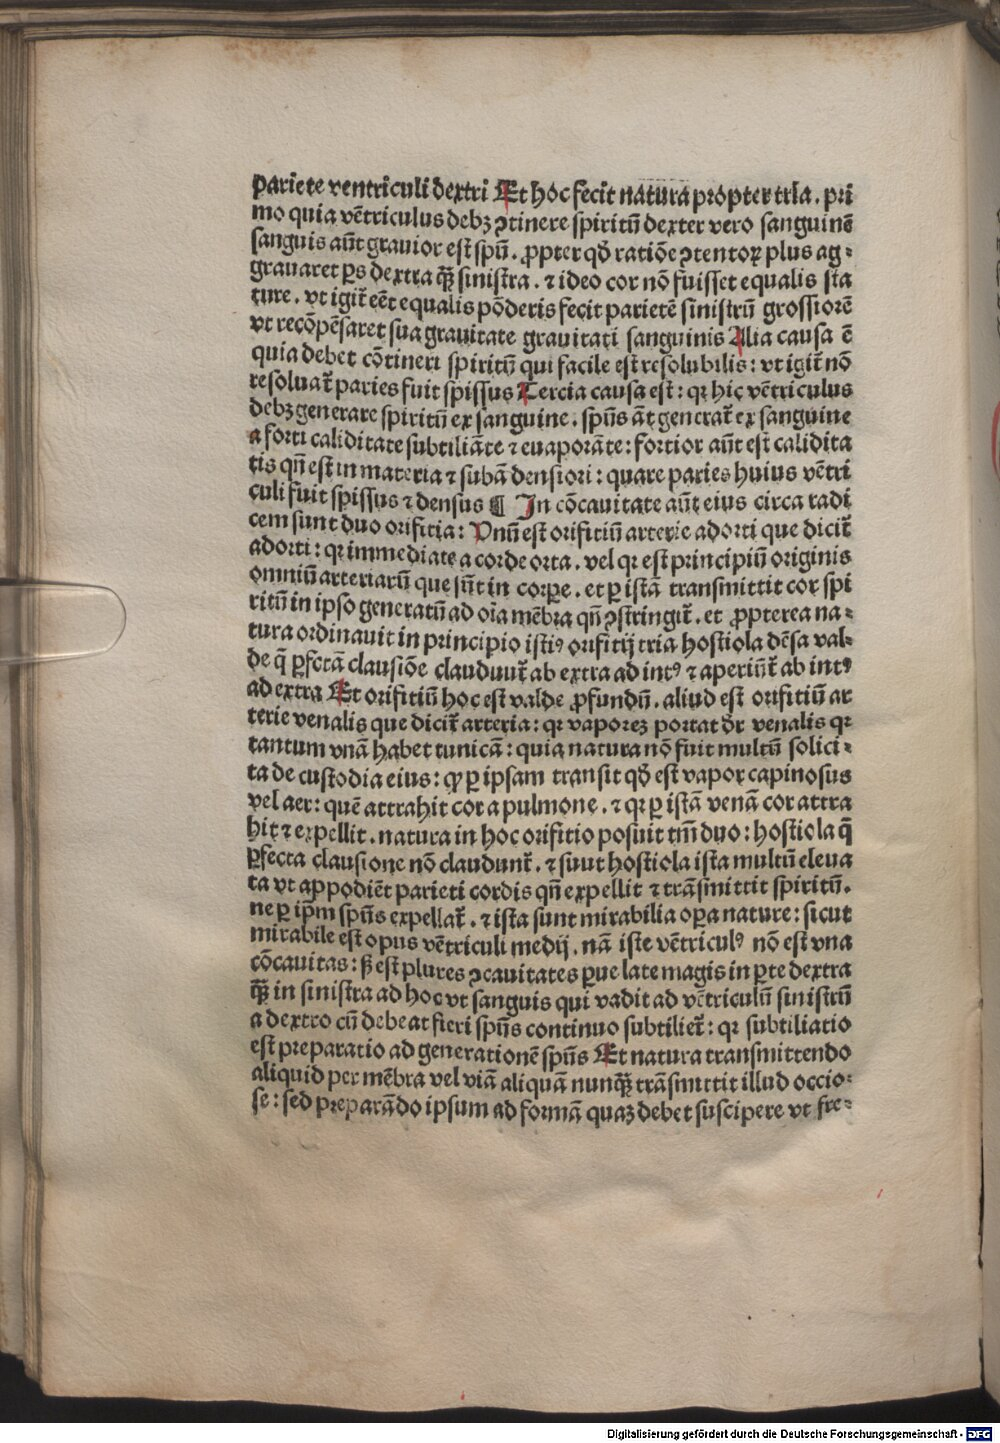 pariete ventriculi dextri Et hoc fecit natura propter tria. pri
mo quia vētriculus debꝫ ꝯtinere spiritū dexter vero sanguinē
sanguis aūt grauior est spū. ꝓpter qð ratiōe ꝯtentoꝝ plus ag⸗
grauaret ꝑs dextra qꝫ̄ sinistra. ⁊ ideo cor nō fuisset equalis sta
ture. vt igit̄ eēt equalis pōderis fecit parietē sinistrū grossiorē
vt recōpēsaret sua grauitate grauitati sanguinis Alia causa ē
quia debet cōtineri spiritū qui facile est resolubilis: vt igit̄ nō
resoluat̄ paries fuit spissus Tercia causa est: qꝛ hic vētriculus
debꝫ generare spiritū ex sanguine. spūs āt generat̄ ex sanguine
a forti caliditate subtiliāte ⁊ euaporāte: fortior aūt est calidita
tis qn̄ est in materia ⁊ subā densiori: quare paries huius vētri
culi fuit spissus ⁊ densus ¶ In cōcauitate aūt eius circa radi
cem sunt duo orifitia: Vnū est orifitiū arterie adorti que dicit̄
adorti: qꝛ immediate a corde orta. vel qꝛ est principiū originis
omniū arteriarū que sūt in corꝑe. et ꝑ istā transmittit cor spi
ritū in ipso generatū ad oīa mēbra qn̄ ꝯstringit̄. et ꝓpterea na⸗
tura ordinauit in principio istiꝰ orifitij tria hostiola dēsa val⸗
de q̄ ꝑfectā clausiōe clauduut̄ ab extra ad intꝰ ⁊ aperiūt̄ ab intꝰ
ad extra Et orifitiū hoc est valde ꝓfundū. aliud est orifitiū ar
terie venalis que dicit̄ arteria: qꝛ vaporeꝫ portat dr̄ venalis qꝛ
tantum vnā habet tunicā: quia natura nō fuit multū solici⸗
ta de custodia eius: qꝛ ꝑ ipsam transit qð est vapor capinosus
vel aer: quē attrahit cor a pulmone. ⁊ qꝛ ꝑ istā venā cor attra
hit ⁊ expellit. natura in hoc orifitio posuit tm̄ duo: hostiola q̄
ꝑfecta clausione nō claudunt̄. ⁊ suut hostiola ista multū eleua
ta vt appodiēt parieti cordis qn̄ expellit ⁊ trāsmittit spiritū.
ne ꝑ ip̄m spūs expellat̄. ⁊ ista sunt mirabilia oꝑa nature: sicut
mirabile est opus vētriculi medij. nā iste vētriculꝰ nō est vna
cōcauitas: ß est plures ꝯcauitates ꝑue late magis in ꝑte dextra
qꝫ̄ in sinistra ad hoc vt sanguis qui vadit ad vētriculū sinistrū
a dextro cū debeat fieri spūs continuo subtiliet̄: qꝛ subtiliatio
est preparatio ad generationē spūs Et natura transmittendo
aliquid per mēbra vel viā aliquā nunqꝫ̄ trāsmittit illud occio⸗
se: sed preparādo ipsum ad formā quaꝫ debet suscipere vt fre⸗
Digitalisierung gefördert durch die Deutsche Forschungsgemeinschaft - DFG